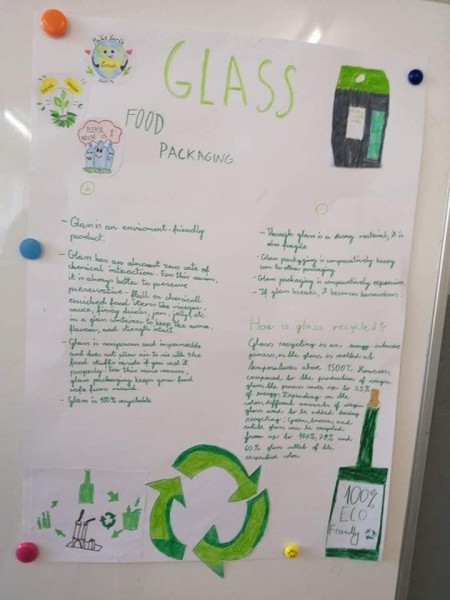 Make Earth
Great
GLASS
FOOD
PACKAGING
PLEASE
- Glass is an enviroment-friendly
product.
- Glass has an almoust zero rate of
chemical interaction. For this reason,
it is always better to preserve
preservative - filled or chemicall
enriched food items like
sauce, fizzy drinks, jam, jelly, etc.
in a glass container to keep the aroma,
flavour, and strength intact.
- Glass is nonporous and impermeable
and does not allow air to mix with the
food stuffs inside if you seal it
properly. For this more reason,
glass packaging keeps your food
safe from outside
- Glass is 100% recyclable
- Though glass is a strong material, it is
also fragile
- Glass packaging is comparatively heavy
than to other packaging
- Glass packaging is comparatively expensive.
- If glass breaks, it becomes hazardous.
How is glass recycled?
Glass recycling is an energy intensive
process, as the glass is melted at
temperatures above 1500°C. However,
compared to the production of virgin
glass, the process saves up to 25%
of energy. Depending on the
color, different amounts of virgin
glass need to be added during
recycling: Green, brown, and
white glass can be recycled
from up to
60% glass cullet of the
respective color.
100%
ECO
Friendly